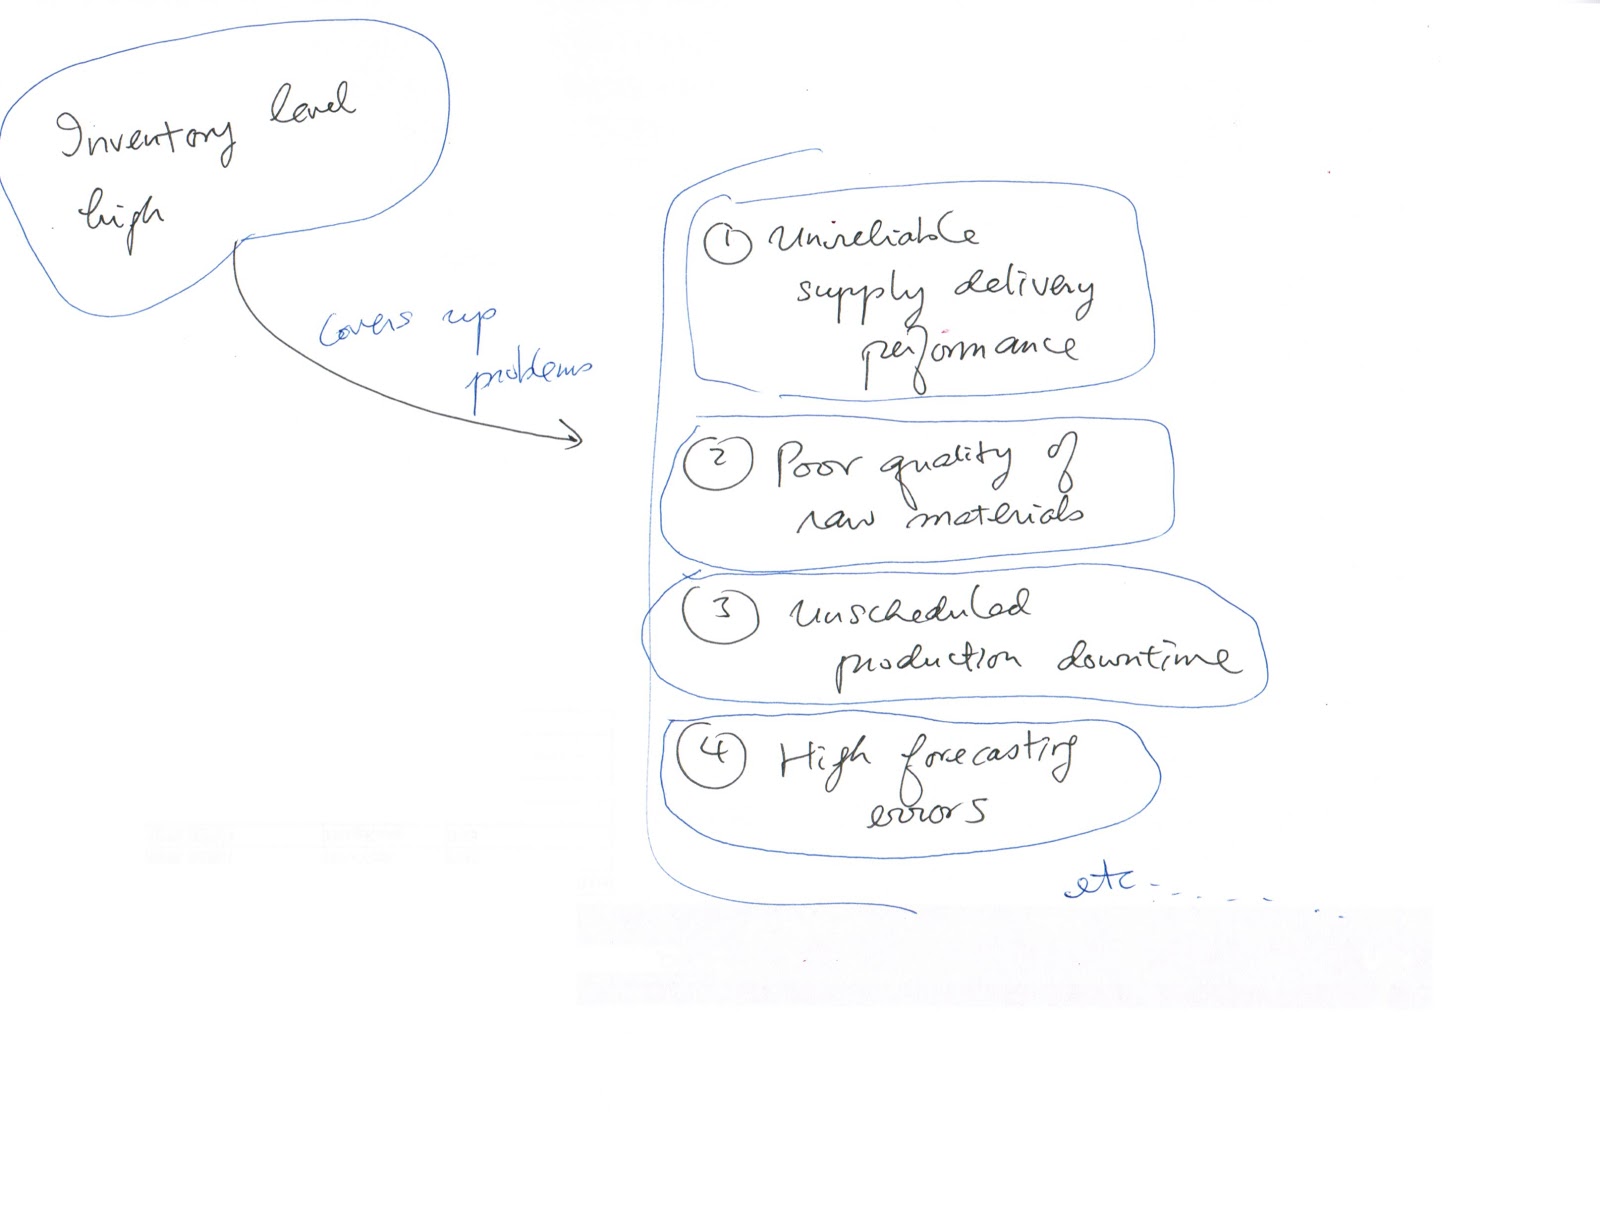 Inventory level
high
covers up
problems
① Unreliable
supply delivery
performance
② Poor quality of
raw materials
③ Unscheduled
production downtime
④ High forecasting
errors
etc - - - - - - -